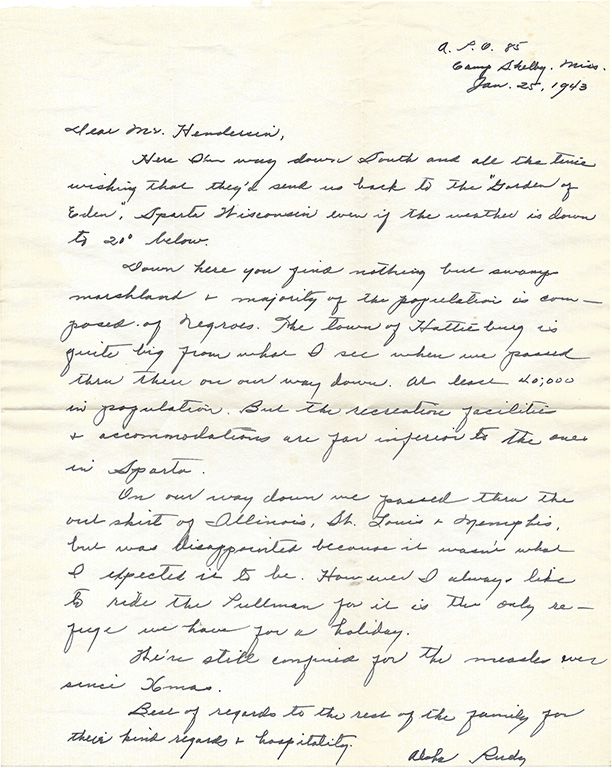 A. P. O. 85
Camp Shelby. Miss.
Jan. 25, 1943
Dear Mr. Henderson,
Here I'm way down South and all the time
wishing that they'd send us back to the "Garden of
Eden", Sparta Wisconsin even if the weather is down
to 20° below.
Down here you find nothing but swamp
marshland + majority of the population is com-
posed of Negroes. The town of Hattiesburg is
quite big from what I see when we passed
thru there on our way down. At least 40,000
in population. But the recreation facilities
+ accommodations are far inferior to the ones
in Sparta.
On our way down we passed thru the
out skirt of Illinois, St. Louis + Memphis,
but was disappointed because it wasn't what
I expected it to be. However I always like
to ride the Pullman for it is the only re-
fuge we have for a holiday.
We're still confined for the measles ever
since Xmas.
Best of regards to the rest of the family for
their kind regards + hospitality.
Aloha Rudy